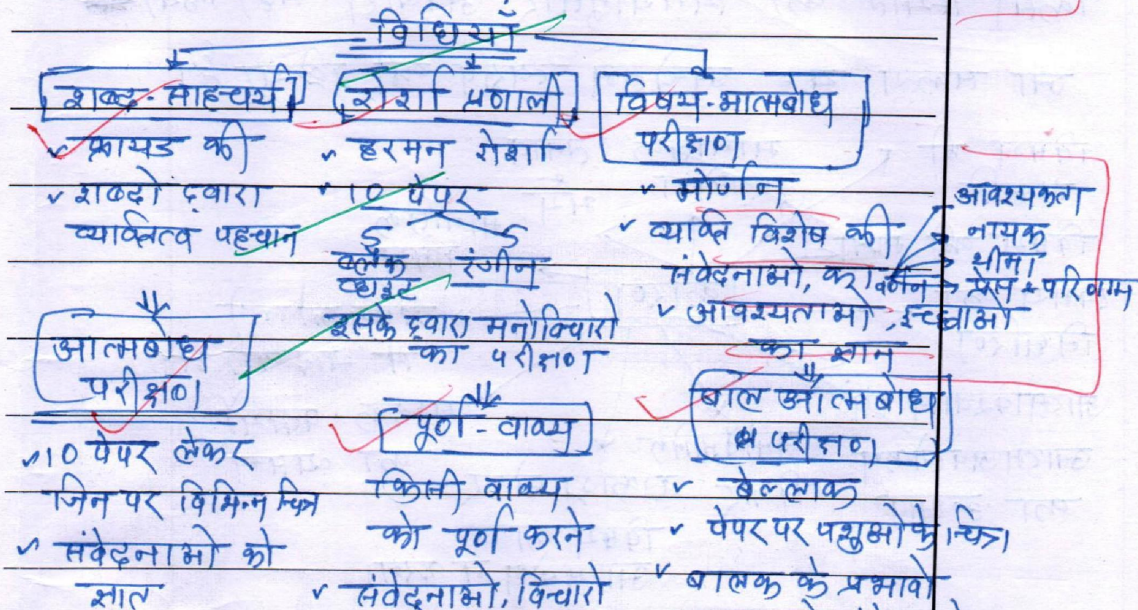 विधियाँ
शब्द-साहचर्य
फ्रायड की
शब्दो द्वारा
व्यक्तित्व पहचान
रोर्शा प्रणाली
हरमन रोर्शा
10 पेपर
5 5
ब्लैक व्हाइट रंगीन
इसके द्वारा मनोविचारो
का परीक्षण
विषय-आत्मबोध
परीक्षण
मोर्गन
व्यक्ति विशेष की
संवेदनाओ, का वर्णन
आवश्यताओ, इच्छाओ
का ज्ञान
आवश्यकता
नायक
थीमा
प्रेस
परिणाम
आत्मबोध
परीक्षण
10 पेपर लेकर
जिन पर विभिन्न चित्र
संवेदनाओ को
ज्ञात
पूर्ण-वाक्य
किसी वाक्य
को पूर्ण करने
संवेदनाओ, विचारो
बाल आत्मबोध
परीक्षण
बेल्लाक
पेपर पर पशुओ के चित्र
बालक के प्रभावो